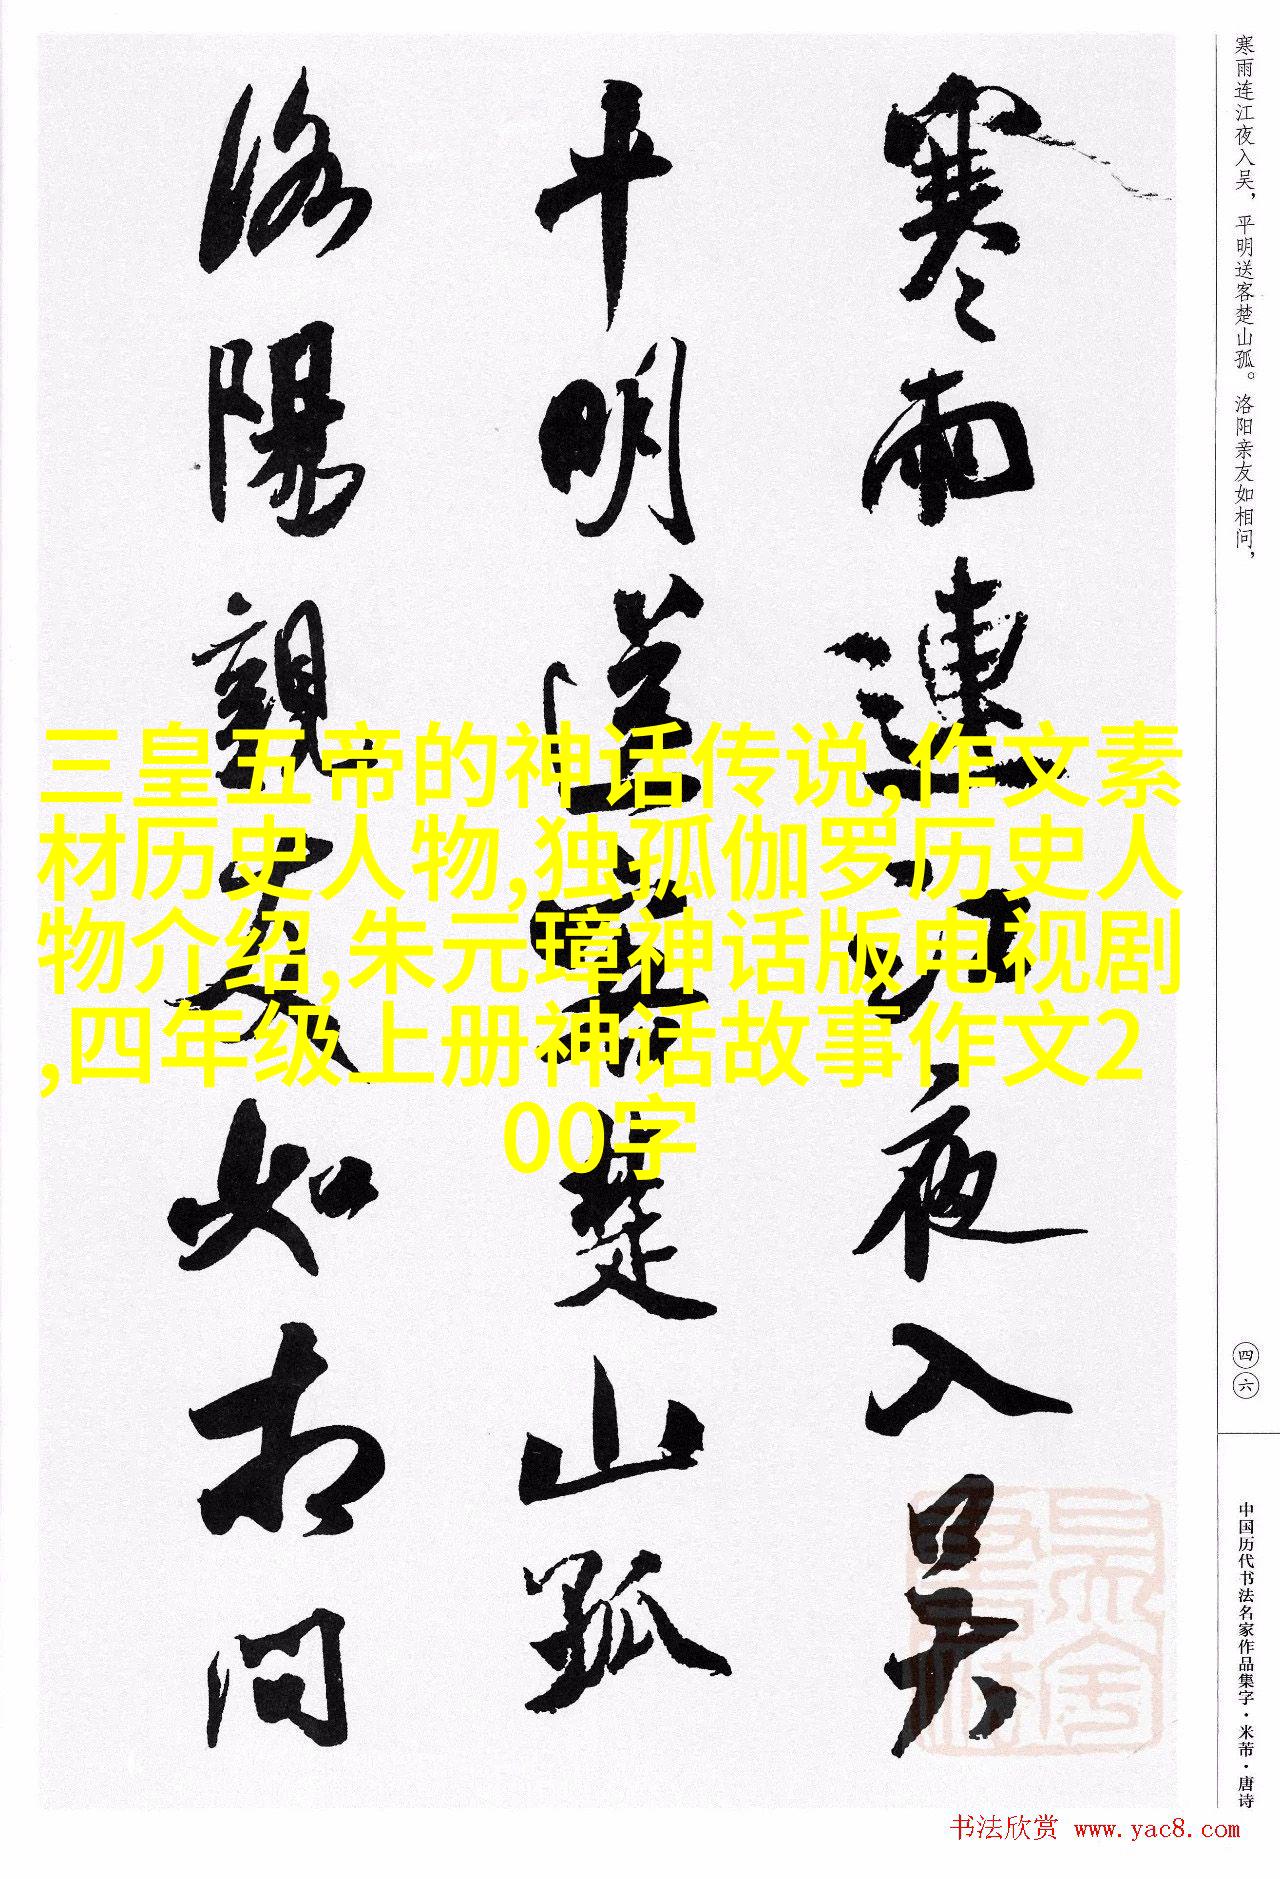 寒雨連江夜入吴
平明送客楚山孤
洛陽親友如相問
寒雨连江夜入吴，平明送客楚山孤。洛阳亲友如相问，
四六
中国历代书法名家作品集字·米芾·唐诗
三皇五帝的神话传说,作文素
材历史人物,独孤伽罗历史人
物介绍,朱元璋神话版电视剧
,四年级上册神话故事作文2
00字
书法欣赏 www.yac8.com